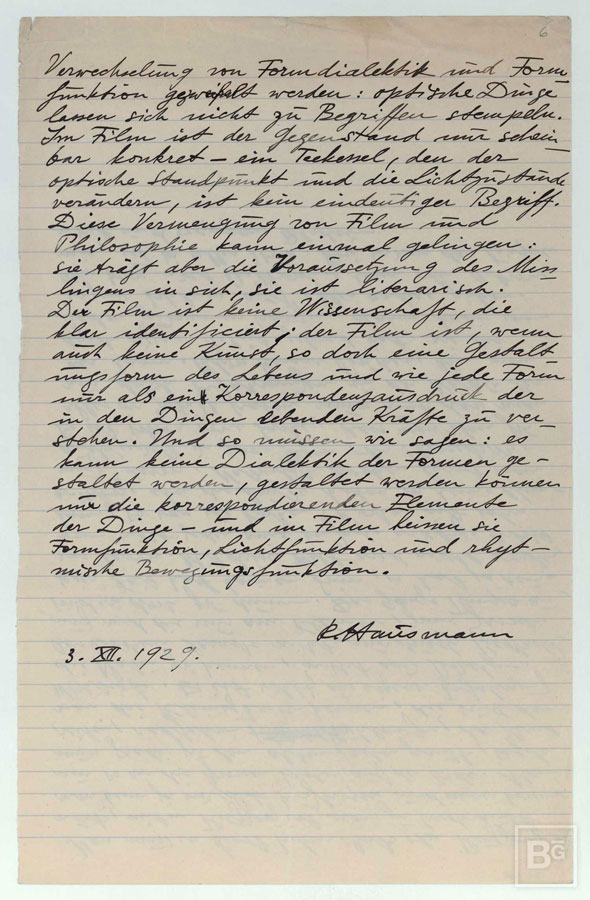 6
Verwechselung von Formdialektik und Form
funktion werden: optische Dinge
lassen sich nicht zu Begriffen stempeln.
Im Film ist der Gegenstand nur schein
bar konkret – ein Teekessel, den der
optische Standpunkt und die Lichtzustände
verändern, ist kein eindeutiger Begriff.
Diese Vermengung von Film und
Philosophie kann einmal gelingen:
sie trägt aber die Voraussetzung des Miss
lingens in sich, sie ist literarisch.
Der Film ist keine Wissenschaft, die
klar identificiert; der Film ist, wenn
auch keine Kunst, so doch eine Gestalt
ungsform des Lebens und wie jede Form
nur als ein Korrespondenzausdruck der
in den Dingen lebenden Kräfte zu ver-
stehen. Und so müssen wir sagen: es
kann keine Dialektik der Formen ge-
staltet werden, gestaltet werden können
nur die korrespondierenden Elemente
der Dinge – und im Film heissen sie
Formfunktion, Lichtfunktion und rhyt-
mische Bewegungsfunktion.
R. Hausmann
3. XII. 1929.
BG